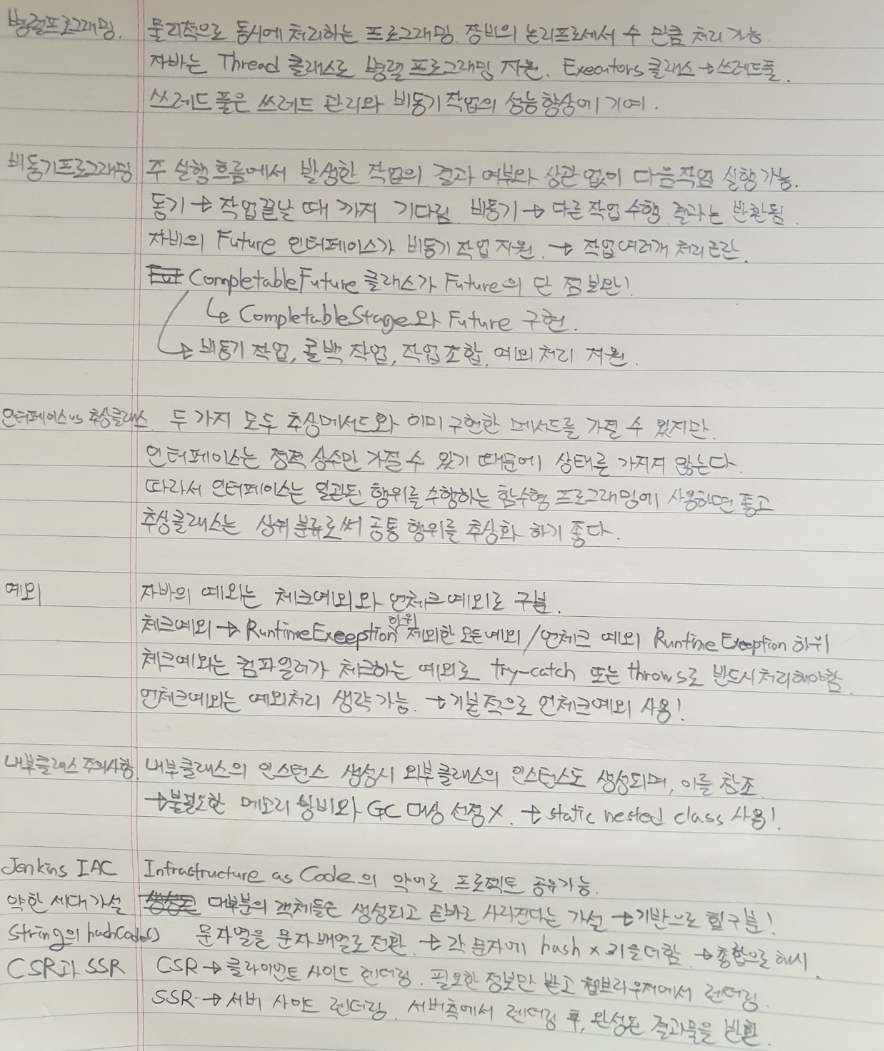 병렬프로그래밍. 물리적으로 동시에 처리하는 프로그래밍. 장비의 논리프로세서 수 만큼 처리 가능
자바는 Thread 클래스로 병렬 프로그래밍 지원. Executors 클래스 → 쓰레드풀.
쓰레드 풀은 쓰레드 관리와 비동기 작업의 성능향상에 기여.
비동기프로그래밍 주 실행흐름에서 발생한 작업의 결과 여부와 상관 없이 다음작업 실행가능.
동기 → 작업끝날 때 까지 기다림 비동기 → 다른 작업 수행 결과는 반환됨
자바의 Future 인터페이스가 비동기 작업 지원. → 작업여러개 처리곤란.
CompletableFuture 클래스가 Future의 단점보완!
↳ CompletableStage와 Future 구현.
→ 비동기 작업, 콜백 작업, 작업조합, 예외 처리 지원.
인터페이스 vs 추상클래스 두 가지 모두 추상메서드와 이미 구현한 메서드를 가질 수 있지만.
인터페이스는 정적 상수만 가질 수 있기 때문에 상태를 가지지 않는다.
따라서 인터페이스는 일관된 행위를 수행하는 함수형 프로그래밍에 사용하면 좋고
추상클래스는 상위 분류로써 공통 행위를 추상화 하기 좋다.
예외 자바의 예외는 체크예외와 언체크예외로 구분.
체크예외 → RuntimeExeeption 하위 제외한 모든예외 / 언체크 예외 RuntimeExeption 하위
체크예외는 컴파일러가 체크하는 예외로 try-catch 또는 throws로 반드시처리해야함.
언체크예외는 예외처리 생략가능. → 기본적으로 언체크예외 사용!
내부클래스 주의사항. 내부클래스의 인스턴스 생성시 외부클래스의 인스턴스도 생성되며, 이를 참조.
→ 불필요한 메모리 낭비와 GC 대상 선정 X. → static nested class 사용!
Jenkins IAC Infrastructure as Code의 약어로 프로젝트 공유가능.
약한 세대가설 대부분의 객체들은 생성되고 곧바로 사라진다는 가설 → 기반으로 힙구분!
String의 hashCode() 문자열을 문자배열로전환. → 각 문자에 hash x 31을더함. → 종합으로 해시.
CSR과 SSR CSR → 클라이언트 사이드 렌더링. 필요한 정보만 받고 웹브라우저에서 렌더링.
SSR → 서버 사이드 렌더링. 서버측에서 렌더링 후, 완성된 결과물을 반환.